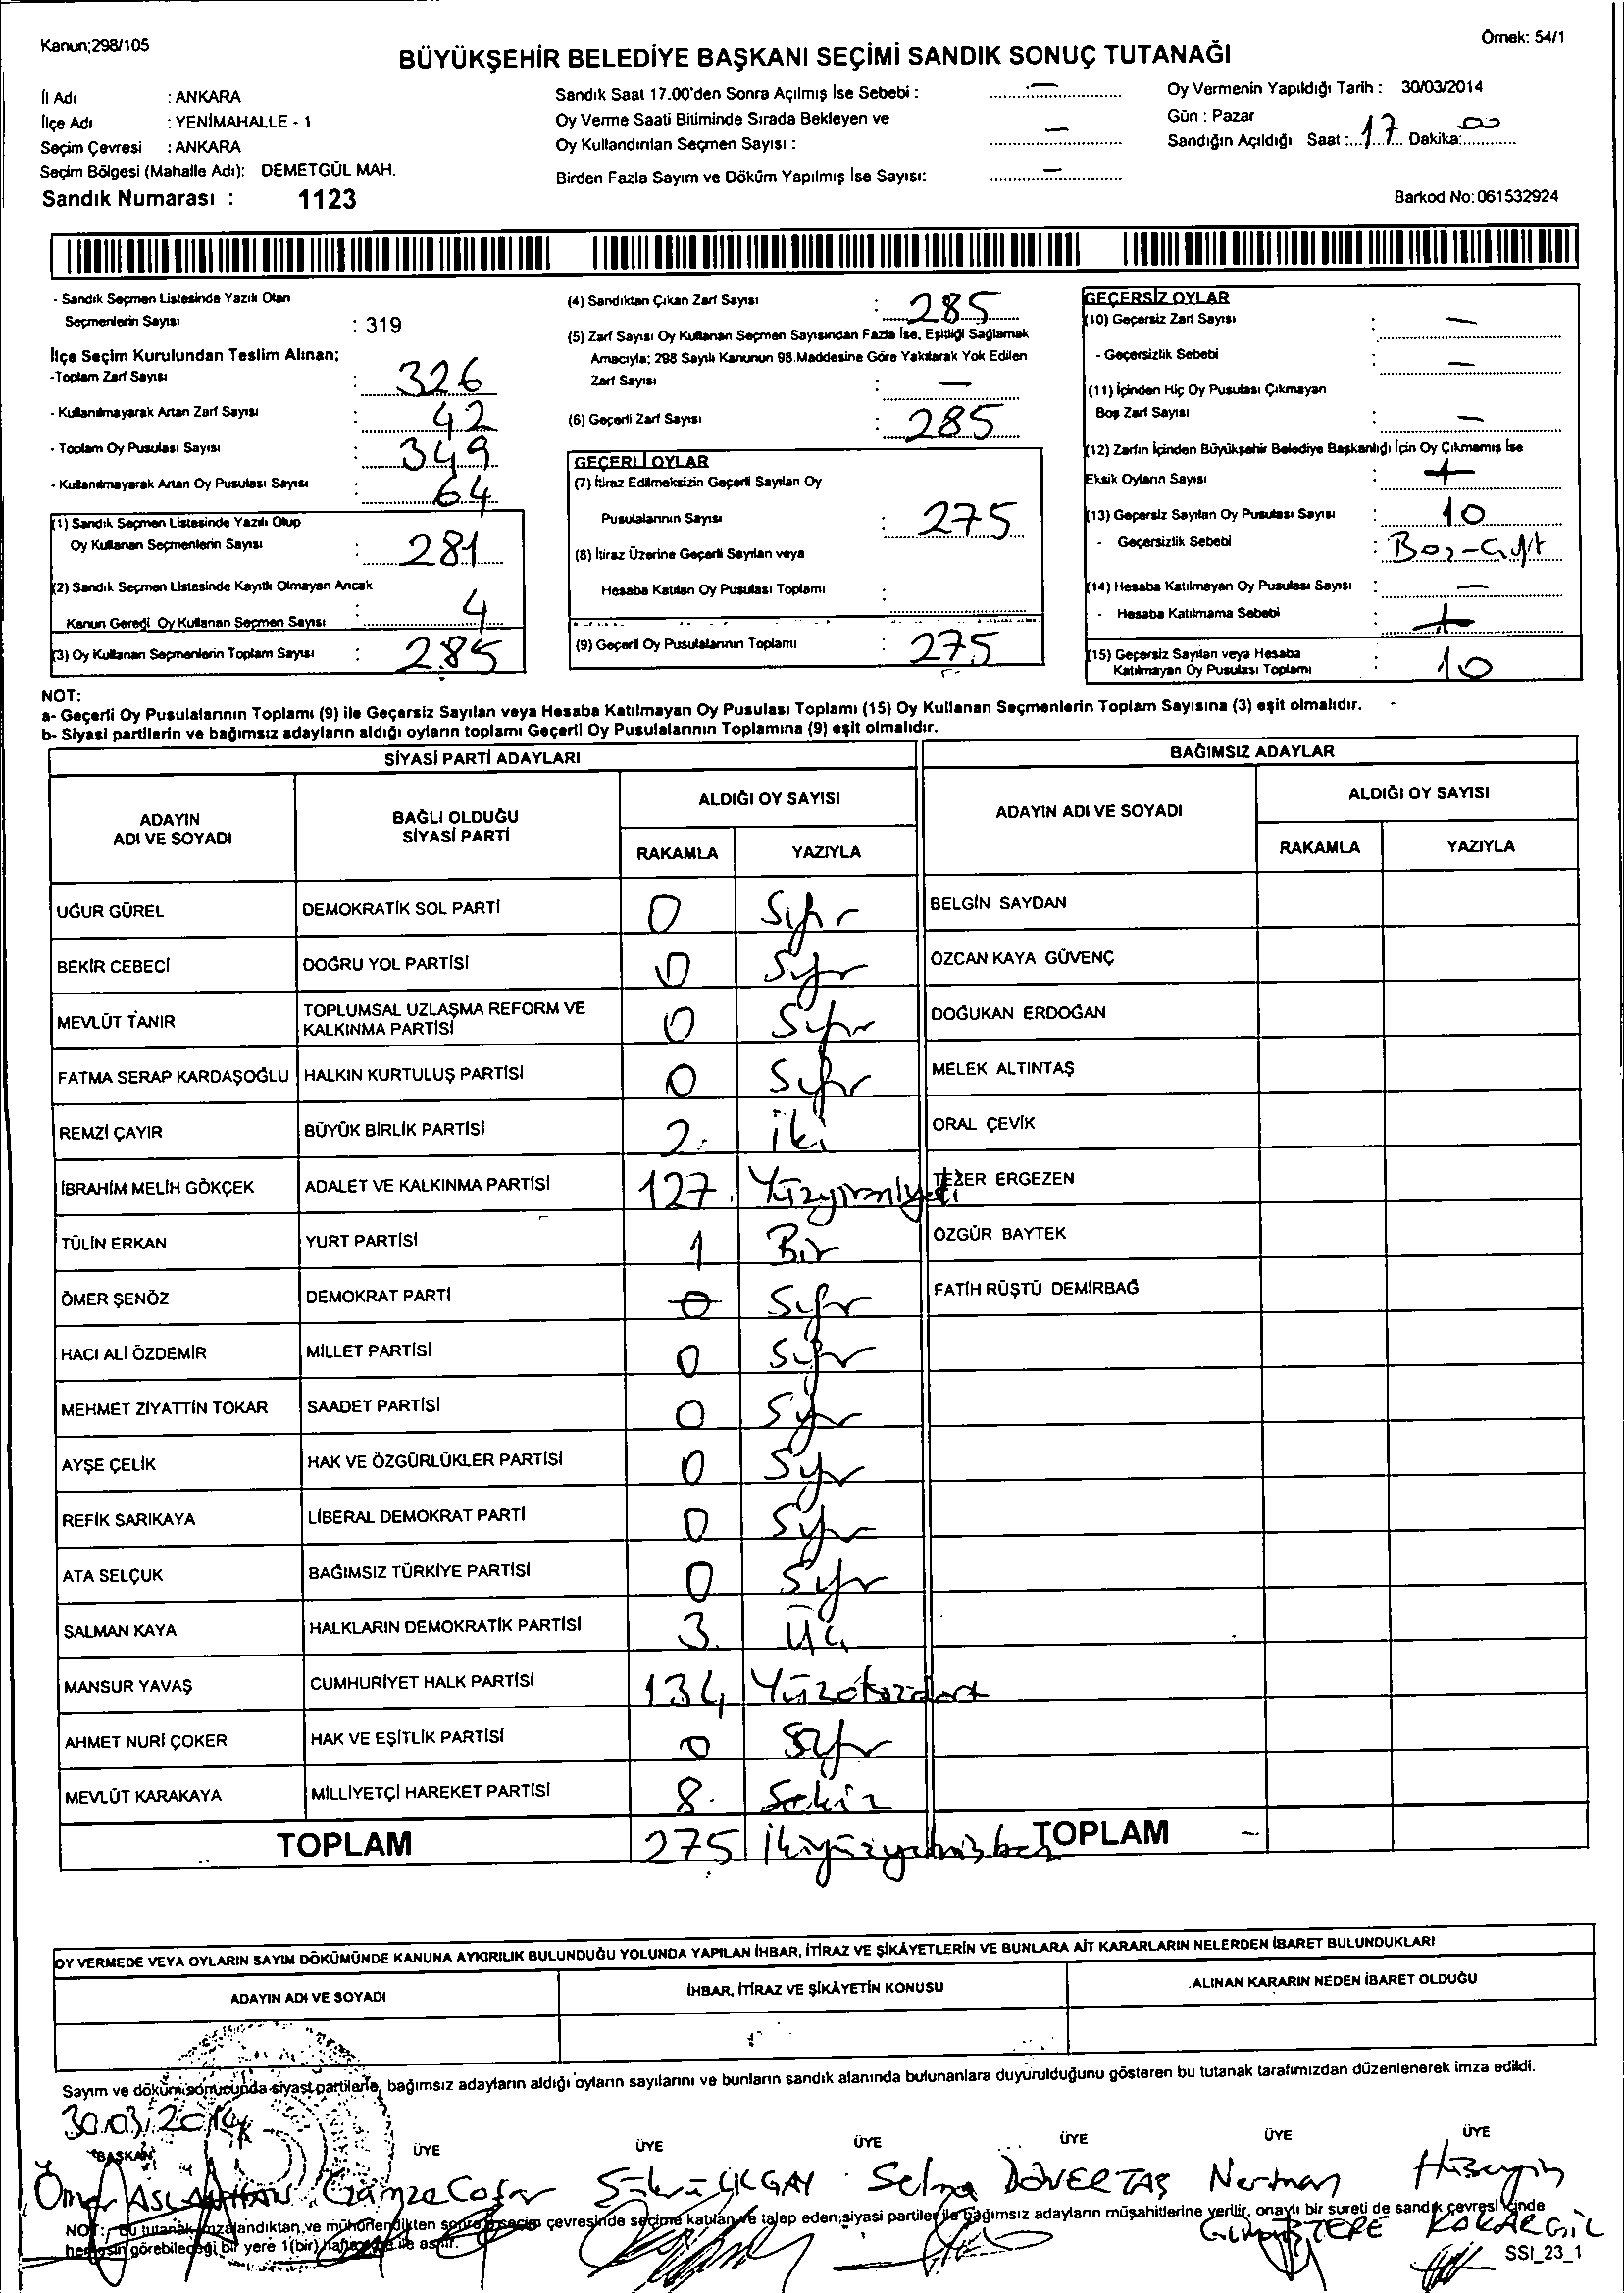 Kanun;298/105
Örnek: 54/1
BÜYÜKŞEHİR BELEDİYE BAŞKANI SEÇİMİ SANDIK SONUÇ TUTANAĞI
İl Adı : ANKARA
İlçe Adı : YENİMAHALLE - 1
Seçim Çevresi : ANKARA
Seçim Bölgesi (Mahalle Adı): DEMETGÜL MAH.
Sandık Numarası : 1123
Sandık Saat 17.00'den Sonra Açılmış İse Sebebi : —
Oy Verme Saati Bitiminde Sırada Bekleyen ve
Oy Kullandırılan Seçmen Sayısı : —
Birden Fazla Sayım ve Döküm Yapılmış İse Sayısı: —
Oy Vermenin Yapıldığı Tarih : 30/03/2014
Gün : Pazar
Sandığın Açıldığı Saat : 17 Dakika: 00
Barkod No: 061532924
- Sandık Seçmen Listesinde Yazılı Olan
Seçmenlerin Sayısı : 319
İlçe Seçim Kurulundan Teslim Alınan;
-Toplam Zarf Sayısı : 326
- Kullanılmayarak Artan Zarf Sayısı : 42
- Toplam Oy Pusulası Sayısı : 349
- Kullanılmayarak Artan Oy Pusulası Sayısı : 64
(1) Sandık Seçmen Listesinde Yazılı Olup
Oy Kullanan Seçmenlerin Sayısı : 281
(2) Sandık Seçmen Listesinde Kayıtlı Olmayan Ancak
Kanun Gereği Oy Kullanan Seçmen Sayısı : 4
(3) Oy Kullanan Seçmenlerin Toplam Sayısı : 285
(4) Sandıktan Çıkan Zarf Sayısı : 285
(5) Zarf Sayısı Oy Kullanan Seçmen Sayısından Fazla İse, Eşitliği Sağlamak
Amacıyla; 298 Sayılı Kanunun 98.Maddesine Göre Yakılarak Yok Edilen
Zarf Sayısı : —
(6) Geçerli Zarf Sayısı : 285
GEÇERLİ OYLAR
(7) İtiraz Edilmeksizin Geçerli Sayılan Oy
Pusulalarının Sayısı : 275
(8) İtiraz Üzerine Geçerli Sayılan veya
Hesaba Katılan Oy Pusulası Toplamı :
(9) Geçerli Oy Pusulalarının Toplamı : 275
GEÇERSİZ OYLAR
(10) Geçersiz Zarf Sayısı : —
- Geçersizlik Sebebi : —
(11) İçinden Hiç Oy Pusulası Çıkmayan
Boş Zarf Sayısı : —
(12) Zarfın İçinden Büyükşehir Belediye Başkanlığı İçin Oy Çıkmamış İse
Eksik Oyların Sayısı
(13) Geçersiz Sayılan Oy Pusulası Sayısı : 10
- Geçersizlik Sebebi :
(14) Hesaba Katılmayan Oy Pusulası Sayısı : —
- Hesaba Katılmama Sebebi :
(15) Geçersiz Sayılan veya Hesaba
Katılmayan Oy Pusulası Toplamı : 10
NOT:
a- Geçerli Oy Pusulalarının Toplamı (9) ile Geçersiz Sayılan veya Hesaba Katılmayan Oy Pusulası Toplamı (15) Oy Kullanan Seçmenlerin Toplam Sayısına (3) eşit olmalıdır.
b- Siyasi partilerin ve bağımsız adayların aldığı oyların toplamı Geçerli Oy Pusulalarının Toplamına (9) eşit olmalıdır.
SİYASİ PARTİ ADAYLARI
BAĞIMSIZ ADAYLAR
ADAYIN ADI VE SOYADI
BAĞLI OLDUĞU SİYASİ PARTİ
ALDIĞI OY SAYISI
RAKAMLA YAZIYLA
ADAYIN ADI VE SOYADI
ALDIĞI OY SAYISI
RAKAMLA YAZIYLA
UĞUR GÜREL DEMOKRATİK SOL PARTİ 0 Sıfır BELGİN SAYDAN
BEKİR CEBECİ DOĞRU YOL PARTİSİ 0 Sıfır ÖZCAN KAYA GÜVENÇ
MEVLÜT TANIR TOPLUMSAL UZLAŞMA REFORM VE KALKINMA PARTİSİ 0 Sıfır DOĞUKAN ERDOĞAN
FATMA SERAP KARDAŞOĞLU HALKIN KURTULUŞ PARTİSİ 0 Sıfır MELEK ALTINTAŞ
REMZİ ÇAYIR BÜYÜK BİRLİK PARTİSİ 2 iki ORAL ÇEVİK
İBRAHİM MELİH GÖKÇEK ADALET VE KALKINMA PARTİSİ 127 Yüzyirmiyedi TEZER ERGEZEN
TÜLİN ERKAN YURT PARTİSİ 1 Bir ÖZGÜR BAYTEK
ÖMER ŞENÖZ DEMOKRAT PARTİ 0 Sıfır FATİH RÜŞTÜ DEMİRBAĞ
HACI ALİ ÖZDEMİR MİLLET PARTİSİ 0 Sıfır
MEHMET ZİYATTİN TOKAR SAADET PARTİSİ 0 Sıfır
AYŞE ÇELİK HAK VE ÖZGÜRLÜKLER PARTİSİ 0 Sıfır
REFİK SARIKAYA LİBERAL DEMOKRAT PARTİ 0 Sıfır
ATA SELÇUK BAĞIMSIZ TÜRKİYE PARTİSİ 0 Sıfır
SALMAN KAYA HALKLARIN DEMOKRATİK PARTİSİ 3 Üç
MANSUR YAVAŞ CUMHURİYET HALK PARTİSİ 134 Yüzotuzdört
AHMET NURİ ÇOKER HAK VE EŞİTLİK PARTİSİ 0 Sıfır
MEVLÜT KARAKAYA MİLLİYETÇİ HAREKET PARTİSİ 8 Sekiz
TOPLAM 275 İkiyüzyetmişbeş TOPLAM —
OY VERMEDE VEYA OYLARIN SAYIM DÖKÜMÜNDE KANUNA AYKIRILIK BULUNDUĞU YOLUNDA YAPILAN İHBAR, İTİRAZ VE ŞİKÂYETLERİN VE BUNLARA AİT KARARLARIN NELERDEN İBARET BULUNDUKLARI
ADAYIN ADI VE SOYADI İHBAR, İTİRAZ VE ŞİKÂYETİN KONUSU ALINAN KARARIN NEDEN İBARET OLDUĞU
Sayım ve döküm sonucunda siyasi partilerle, bağımsız adayların aldığı oyların sayılarını ve bunların sandık alanında bulunanlara duyurulduğunu gösteren bu tutanak tarafımızdan düzenlenerek imza edildi.
30.03.2014
BAŞKAN ÜYE ÜYE ÜYE ÜYE ÜYE ÜYE
Ömer ASLANHAN Gamze Coşar Selma DÖVERTAŞ Neriman Hüseyin
GÜMÜŞTEPE KARARGİL
NOT: Bu tutanak imzalandıktan ve mühürlendikten sonra seçim çevresinde seçime katılan ve talep eden siyasi partiler ile bağımsız adayların müşahitlerine verilir, onaylı bir sureti de sandık çevresi içinde
herkesin görebileceği bir yere 1(bir) hafta süre ile asılır.
SSI_23_1